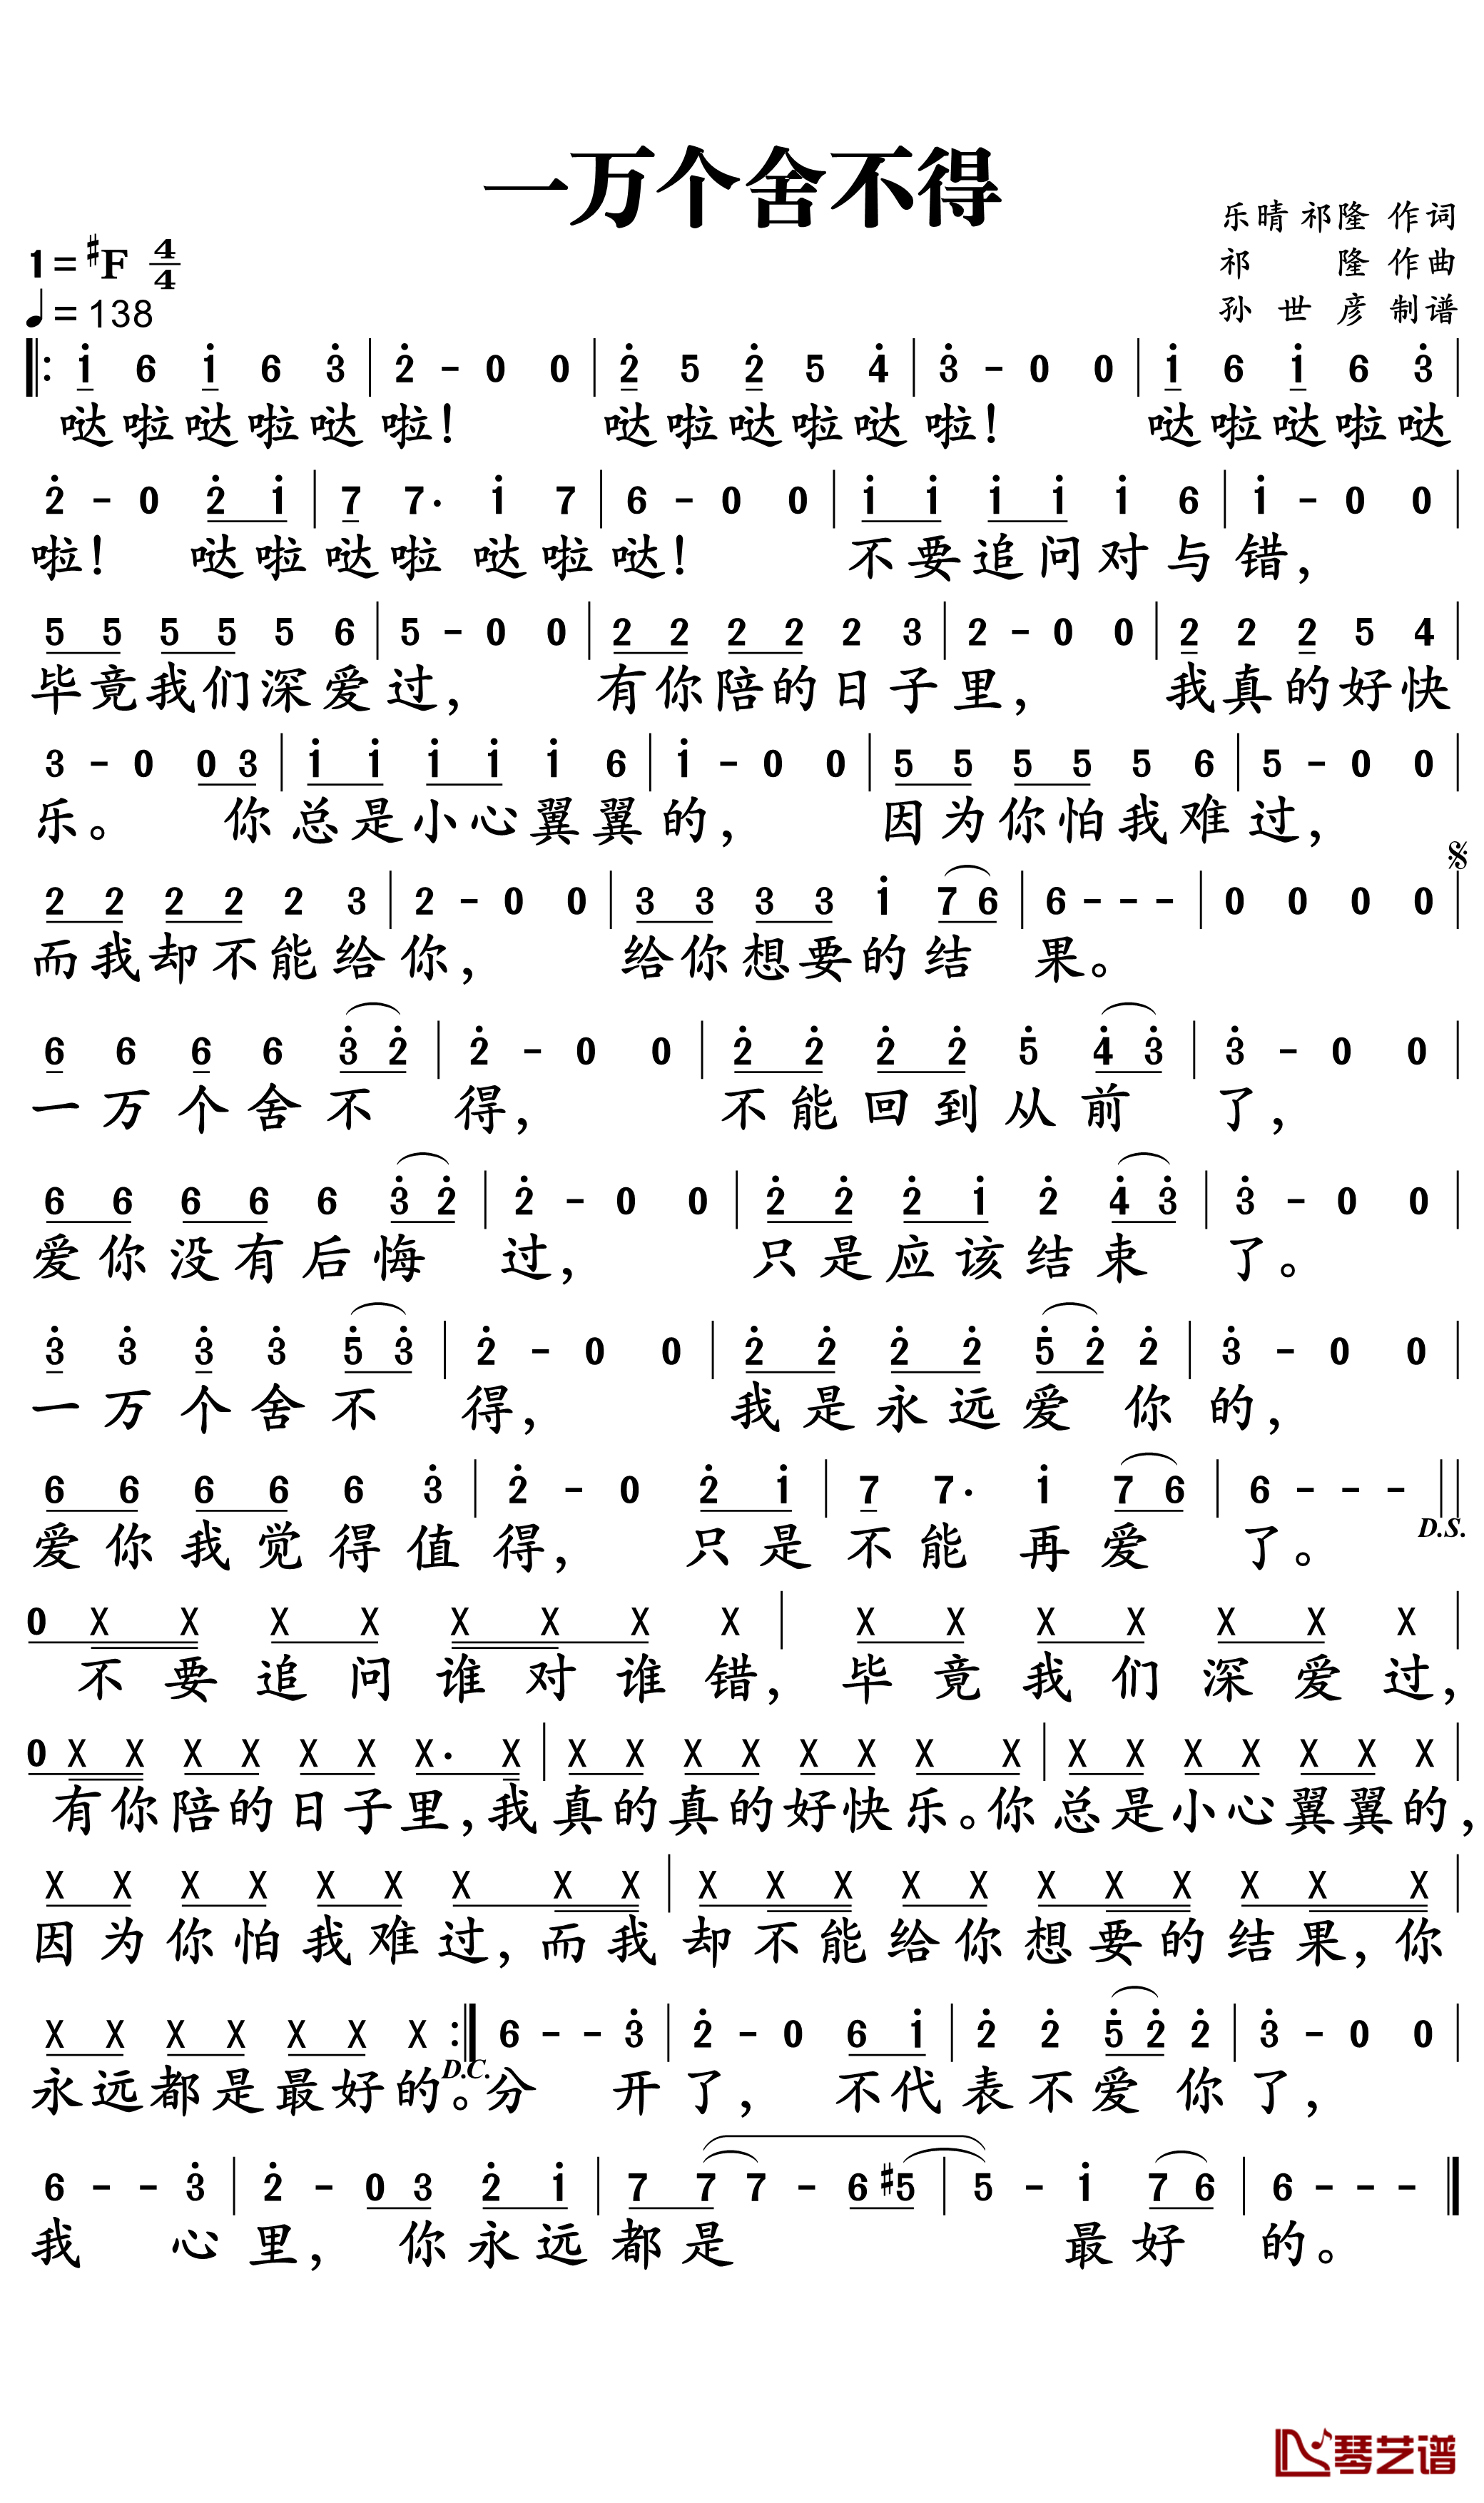 一万个舍不得
乐晴 祁隆 作词
祁 隆 作曲
孙世彦 制谱
1=#F 4/4
♩=138
𝄆 i̇ 6 i̇ 6 3̇ | 2̇ - 0 0 | 2̇ 5 2̇ 5 4̇ | 3̇ - 0 0 | i̇ 6 i̇ 6 3̇ |
哒啦哒啦哒 啦! 哒啦哒啦哒 啦! 哒啦哒啦哒
2̇ - 0 2̇ i̇ | 7 7· i̇ 7 | 6 - 0 0 | i̇ i̇ i̇ i̇ i̇ 6 | i̇ - 0 0 |
啦! 哒啦哒啦 哒啦哒! 不要追问对与错,
5 5 5 5 5 6 | 5 - 0 0 | 2 2 2 2 2 3 | 2 - 0 0 | 2 2 2 5 4 |
毕竟我们深爱过, 有你陪的日子里, 我真的好快
3 - 0 0 3 | i̇ i̇ i̇ i̇ i̇ 6 | i̇ - 0 0 | 5 5 5 5 5 6 | 5 - 0 0 |
乐。 你总是小心翼翼的, 因为你怕我难过,
𝄋
2 2 2 2 2 3 | 2 - 0 0 | 3 3 3 3 i̇ 7 6 | 6 - - - | 0 0 0 0 |
而我却不能给你, 给你想要的结 果。
6 6 6 6 3̇ 2̇ | 2̇ - 0 0 | 2̇ 2̇ 2̇ 2̇ 5̇ 4̇ 3̇ | 3̇ - 0 0 |
一万个舍不 得, 不能回到从前 了,
6 6 6 6 6 3̇ 2̇ | 2̇ - 0 0 | 2̇ 2̇ 2̇ i̇ 2̇ 4̇ 3̇ | 3̇ - 0 0 |
爱你没有后悔 过, 只是应该结束 了。
3̇ 3̇ 3̇ 3̇ 5̇ 3̇ | 2̇ - 0 0 | 2̇ 2̇ 2̇ 2̇ 5̇ 2̇ 2̇ | 3̇ - 0 0 |
一万个舍不 得, 我是永远爱 你的,
6 6 6 6 6 3̇ | 2̇ - 0 2̇ i̇ | 7 7· i̇ 7 6 | 6 - - - ||
爱你我觉得值得, 只是不能 再爱 了。
D.S.
0 X X X X X X X X | X X X X X X X |
不要追问谁对谁错, 毕竟我们深爱过,
0 X X X X X X X· X | X X X X X X X X | X X X X X X X |
有你陪的日子里,我真的真的好快乐。你总是小心翼翼的,
X X X X X X X X X | X X X X X X X X X X X |
因为你怕我难过,而我却不能给你想要的结果,你
X X X X X X X 𝄇 6 - - 3̇ | 2̇ - 0 6 i̇ | 2̇ 2̇ 5̇ 2̇ 2̇ | 3̇ - 0 0 |
D.C.
永远都是最好的。分 开了, 不代表不爱 你了,
6 - - 3̇ | 2̇ - 0 3 2̇ i̇ | 7 7 7 - 6 #5 | 5 - i̇ 7 6 | 6 - - - ‖
我 心里, 你永远都是 最好 的。
琴艺谱